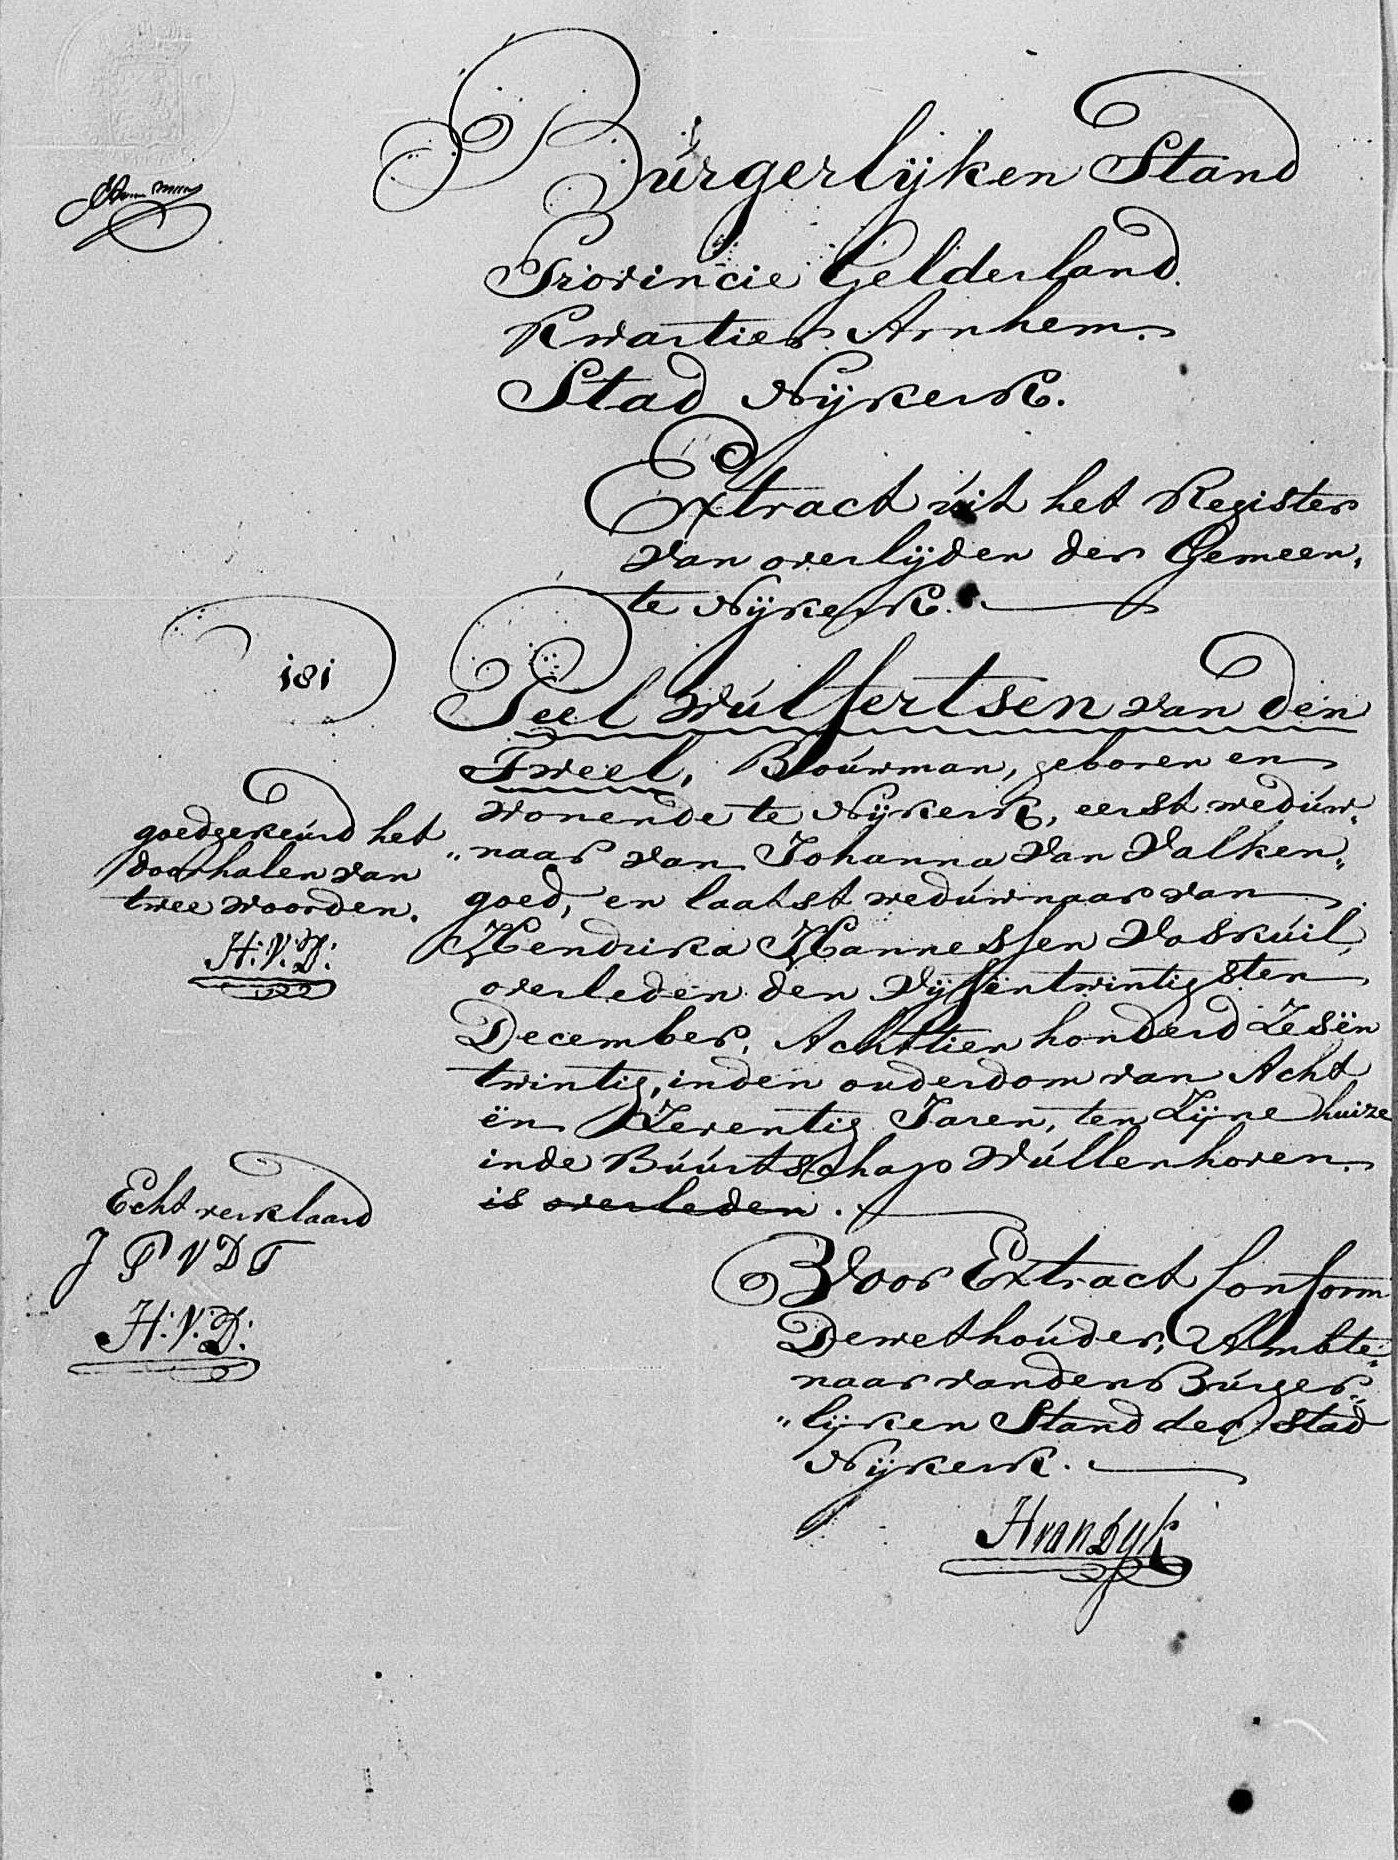 Búrgerlijken Stand
Provincie Gelderland.
Kwartier Arnhem.
Stad Nijkerk.
Extract úit het Register
van overlijden der Gemeen,
te Nijkerk.
181
Peel Wúlfertsen van den
Tweel, Bouwman, geboren en
wonende te Nijkerk, eerst wedúw,
„naar van Johanna van Valken„
goed, en laatst wedúwnaar van
Hendrika Hannessen Voskúil,
overleden den Vijfëntwintigsten
December, Achttien honderd Zesën
twintig, inden ouderdom van Acht
ën Zeventig Jaren, ten Zijne huize
inde Búúrtschap Wúllenhoven.
is overleden.
goedgekeúrd het
doorhalen van
twee woorden.
H: V: D:
Echt verklaard
J P V D T
H: V: D:
Voor Extract Conform
De wethoúder, Ambte„
naar van den Búrger„
„lijken Stand der Stad
Nijkerk.
H van Dyk